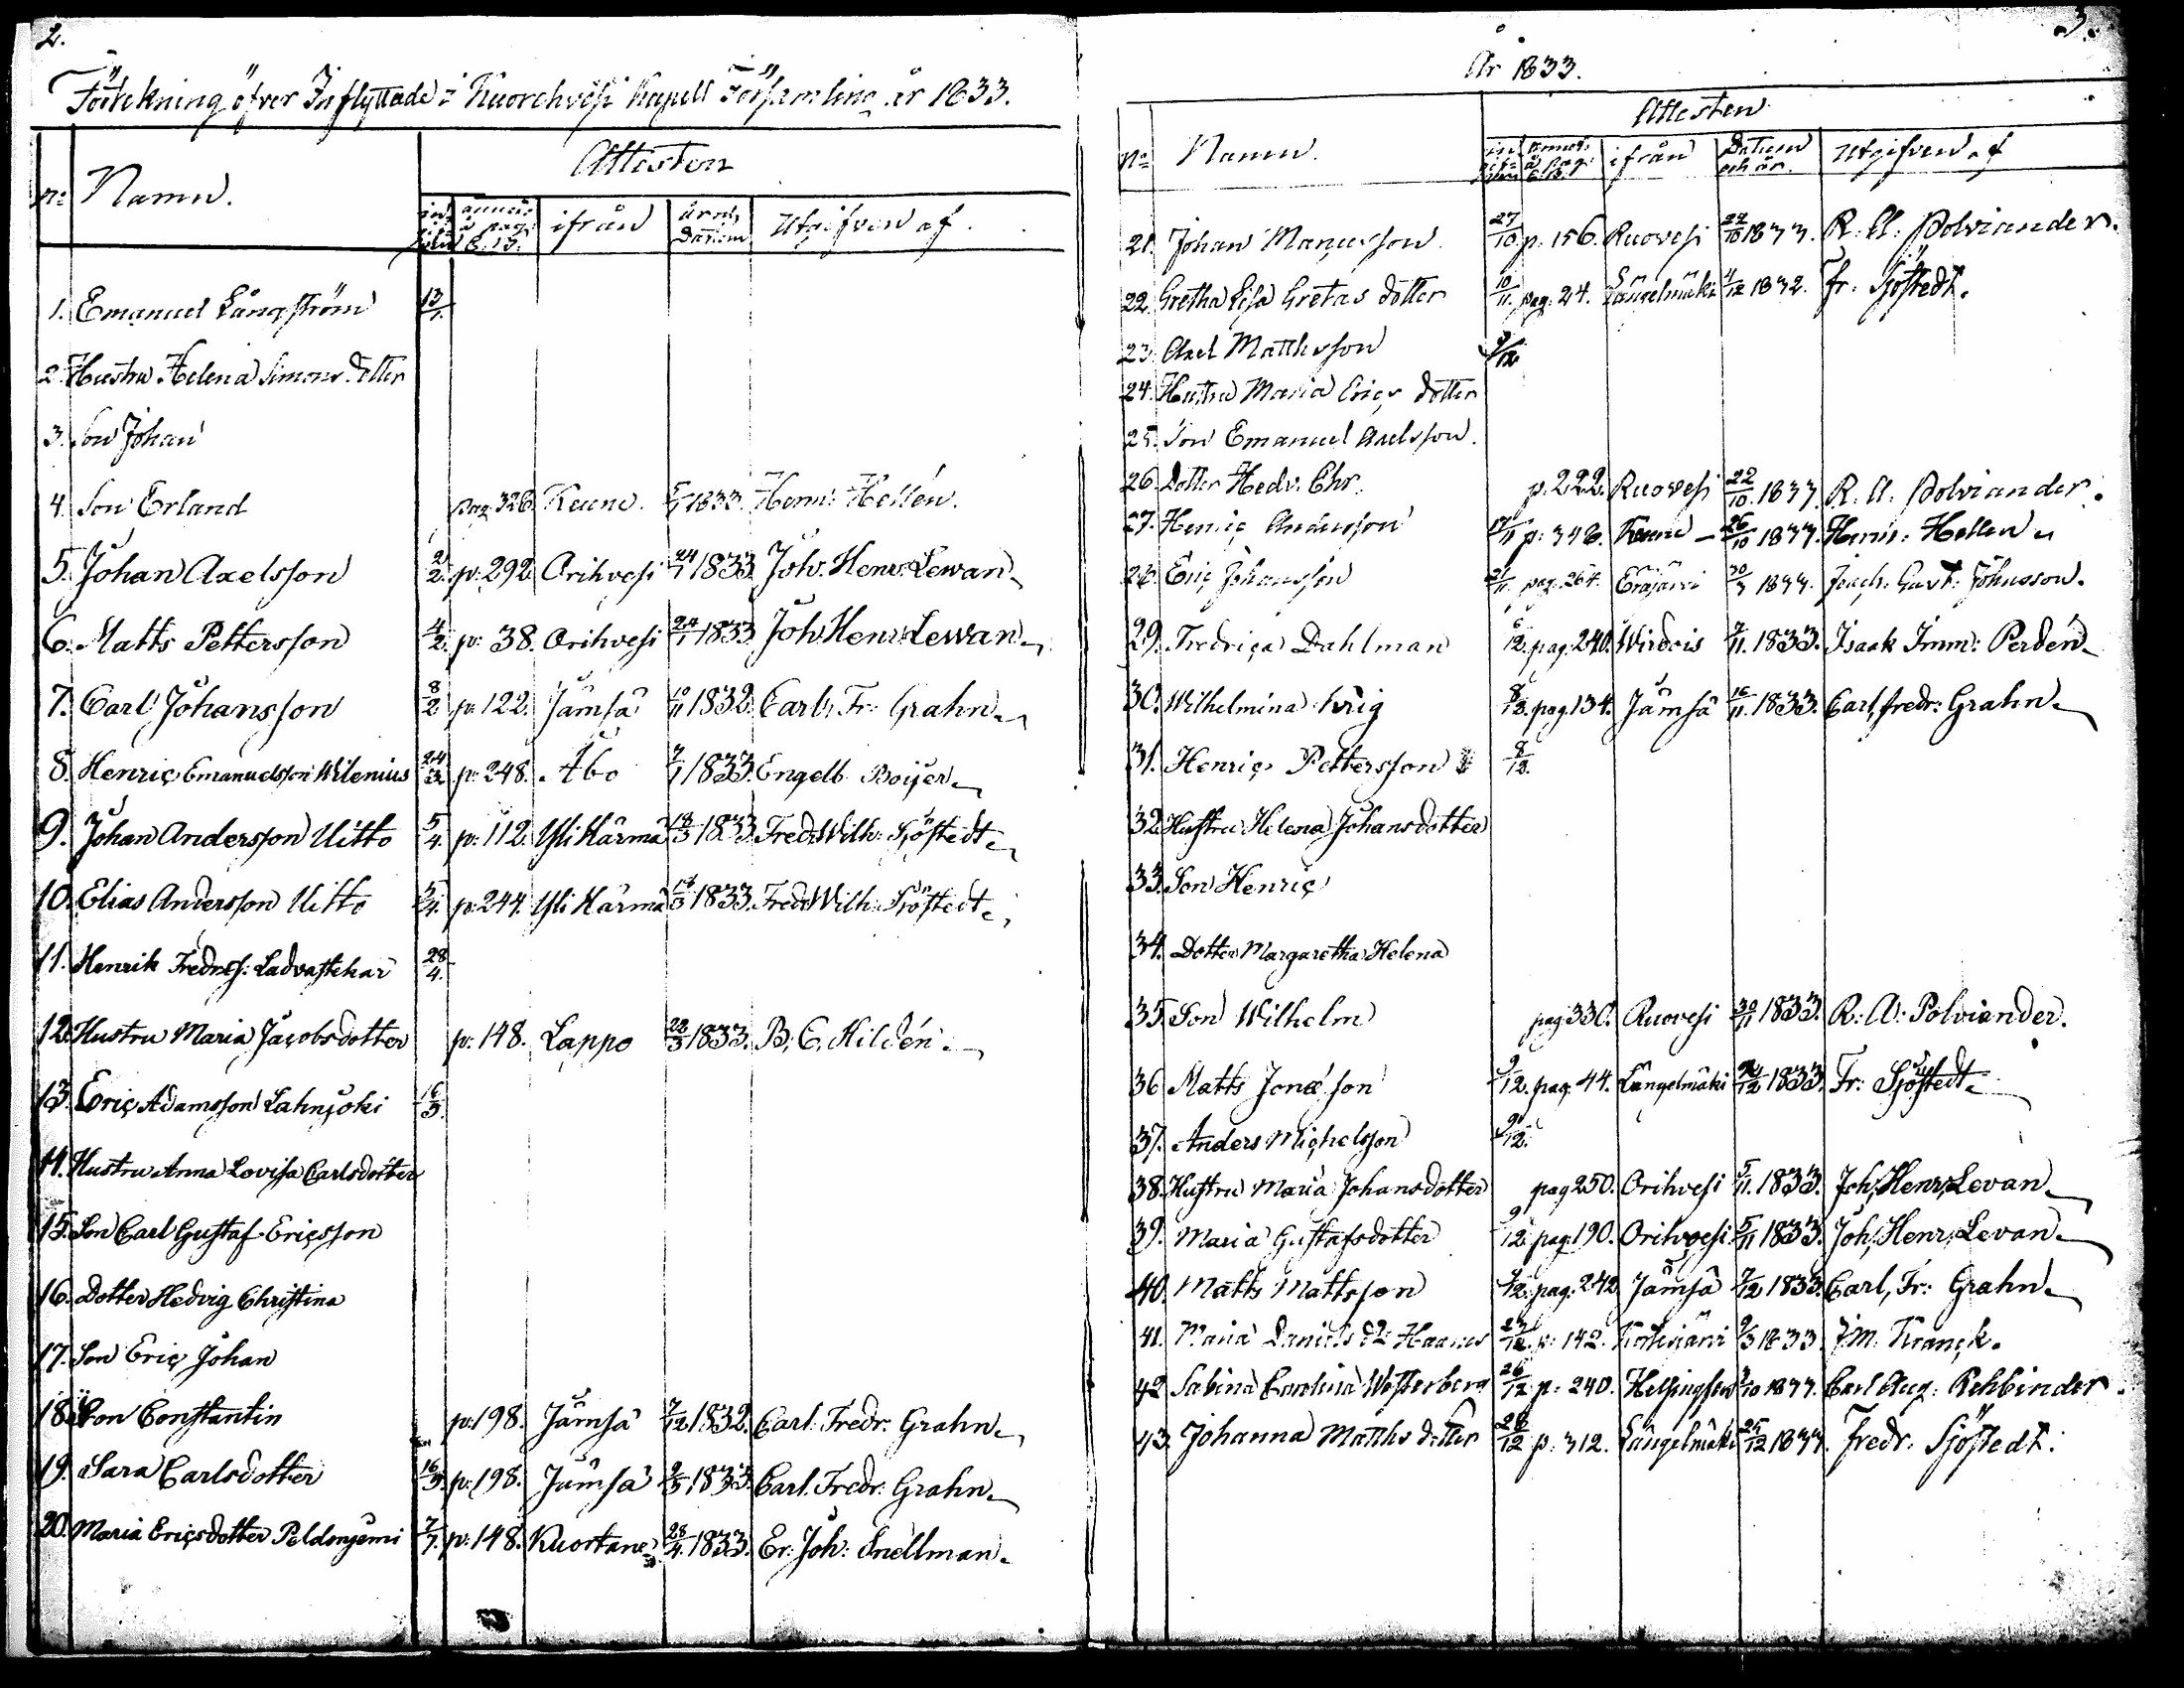 2.
Förtekning öfver Inflyttade i Kuorehvesi Kapell Församling år 1833.
Attesten
No Namn. annot. å pag. ifrån år och Datum Utgifven af.
1. Emanuel Långström 13/1.
2. Hustru Helena Simons dotter
3. Son Johan
4. Son Erland pag. 326. Keuru. 5/1 1833. Henr: Hellén.
5. Johan Axelsson 2/2. p: 292. Orihvesi 24/1 1833. Joh. Henr: Lewan
6. Matts Pettersson 4/2. p: 38. Orihvesi 24/1 1833. Joh. Henr: Lewan
7. Carl Johansson 8/2 p: 122. Jämsä 10/11 1832. Carl, Fr: Grahn
8. Henric Emanuelsson Wilenius 24/3 p: 248. Åbo 7/1 1833. Engelb. Boijer
9. Johan Andersson Uitto 5/4. p: 112. Yli Härmä 18/3 1833. Fredr Wilh: Sjöstedt
10. Elias Andersson Uitto 5/4. p: 244. Yli Härmä 18/3 1833. Fredr Wilh: Sjöstedt
11. Henrik Fredrs: Ladvastekar 28/4.
12. Hustru Maria Jacobsdotter p: 148. Lappo 22/3 1833. B. E. Hildén.
13. Eric Adamsson Lahnjoki 16/5.
14. Hustru Anna Lovisa Carlsdotter
15. Son Carl Gustaf Ericsson
16. Dotter Hedvig Christina
17. Son Eric Johan
18. Son Constantin p: 198. Jämsä 7/12 1832. Carl. Fredr: Grahn
19. Sara Carlsdotter 16/5. p: 198. Jämsä 9/5 1833. Carl. Fredr: Grahn
20. Maria Ericsdotter Peldonjemi 7/7. p: 148. Kuortane 28/4. 1833. Er: Joh: Snellman.
3.
År 1833.
Attesten
No Namn. annot. å pag. ifrån Datum och år. Utgifven af
21. Johan Manuesson 27/10 p: 156. Ruovesi 22/10 1833. R. A. Polviander.
22. Gretha Lisa Gretas dotter 10/11. pag: 24. Längelmäki 11/12 1832. Fr: Sjöstedt.
23. Axel Matthsson 9/12
24. Hustru Maria Erics dotter
25. Son Emanuel Axelsson.
26. Dotter Hedv. Chr. p. 222. Ruovesi 22/10. 1833. R. A. Polviander.
27. Henric Andersson 17/11 p: 346. Keuru 26/10 1833. Henr: Hellen
28. Eric Johansson 21/11. pag. 264. Eräjärvi 30/3 1833. Joach. Gust: Johnsson.
29. Fredrica Dahlman 6/12. pag. 240. Wirdois 7/11. 1833. Isaak Imm: Perdén
30. Wilhelmina Krig 8/12. pag. 134. Jämsä 16/11. 1833. Carl, fredr: Grahn
31. Henric Pettersson 8/12.
32. Hustru Helena Johansdotter
33. Son Henric
34. Dotter Margaretha Helena
35. Son Wilhelm pag: 330. Ruovesi 30/11 1833. R: A: Polviander.
36 Matts Jonæson 9/12. pag. 44. Längelmäki 1833. Fr: Sjöstedt
37. Anders Michelsson 9/12.
38. Hustru Maria Johansdotter pag 250. Orihvesi 5/11. 1833. Joh, Henr, Levan
39. Maria Gustafsdotter 9/12. pag: 190. Orihvesi 5/11 1833. Joh, Henr, Levan
40. Matts Mattsson 9/12. pag. 242 Jämsä 7/12 1833. Carl, Fr: Grahn
41. Maria Daniels dr Haanes 23/12. p: 142. 9/3 1833 J. M. Kranck.
42 Sabina Carolina Westerberg 26/12 p: 240. Helsingfors 1833. Carl Aug: Rehbinder.
43. Johanna Matths dotter 28/12 p: 312. Längelmäki 25/12 1833. Fredr. Sjöstedt.